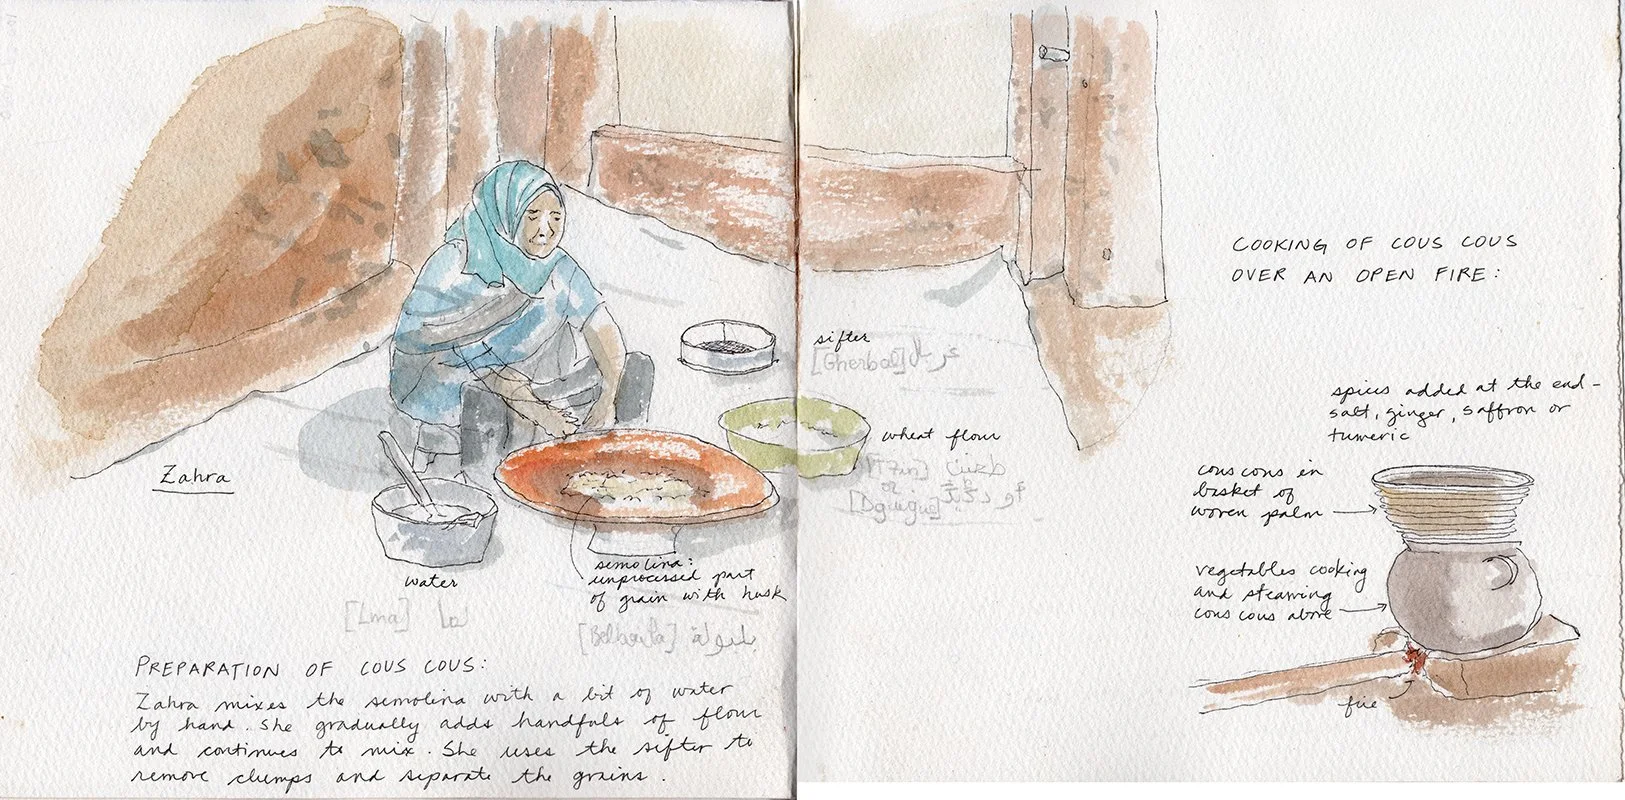 Zahra
water
[Lma] لما
semolina:
unprocessed part
of grain with husk
PREPARATION OF COUS COUS:
Zahra mixes the semolina with a bit of water
by hand. She gradually adds handfuls of flour
and continues to mix. She uses the sifter to
remove clumps and separate the grains.
sifter
[Gherbal] غربال
wheat flour
or
COOKING OF COUS COUS
OVER AN OPEN FIRE:
spices added at the end –
salt, ginger, saffron or
tumeric
cous cous in
basket of
woven palm
vegetables cooking
and steaming
cous cous above
fire